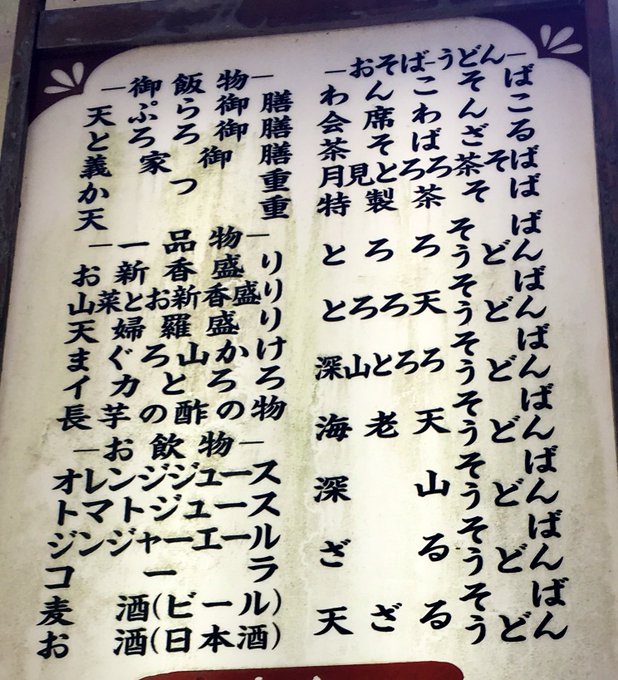 ―おそば-うどん―
わんこそば
会席わんこ
茶そばざる
月見とろろ茶そば
特製茶そば
とろろそば
うどん
とろろ天そば
うどん
深山とろろそば
うどん
海老天そば
うどん
深山そば
うどん
ざるそば
うどん
天ざるそば
うどん
―御飯物―
天ぷら御膳
とろろ御膳
義家御膳
かつ重
天重
―一品物―
お新香盛り
山菜とお新香盛り
天婦羅盛り
まぐろ山かけ
イカとろろ
長芋の酢の物
―お飲物―
オレンジジュース
トマトジュース
ジンジャーエール
コーラ
麦酒(ビール)
お酒(日本酒)